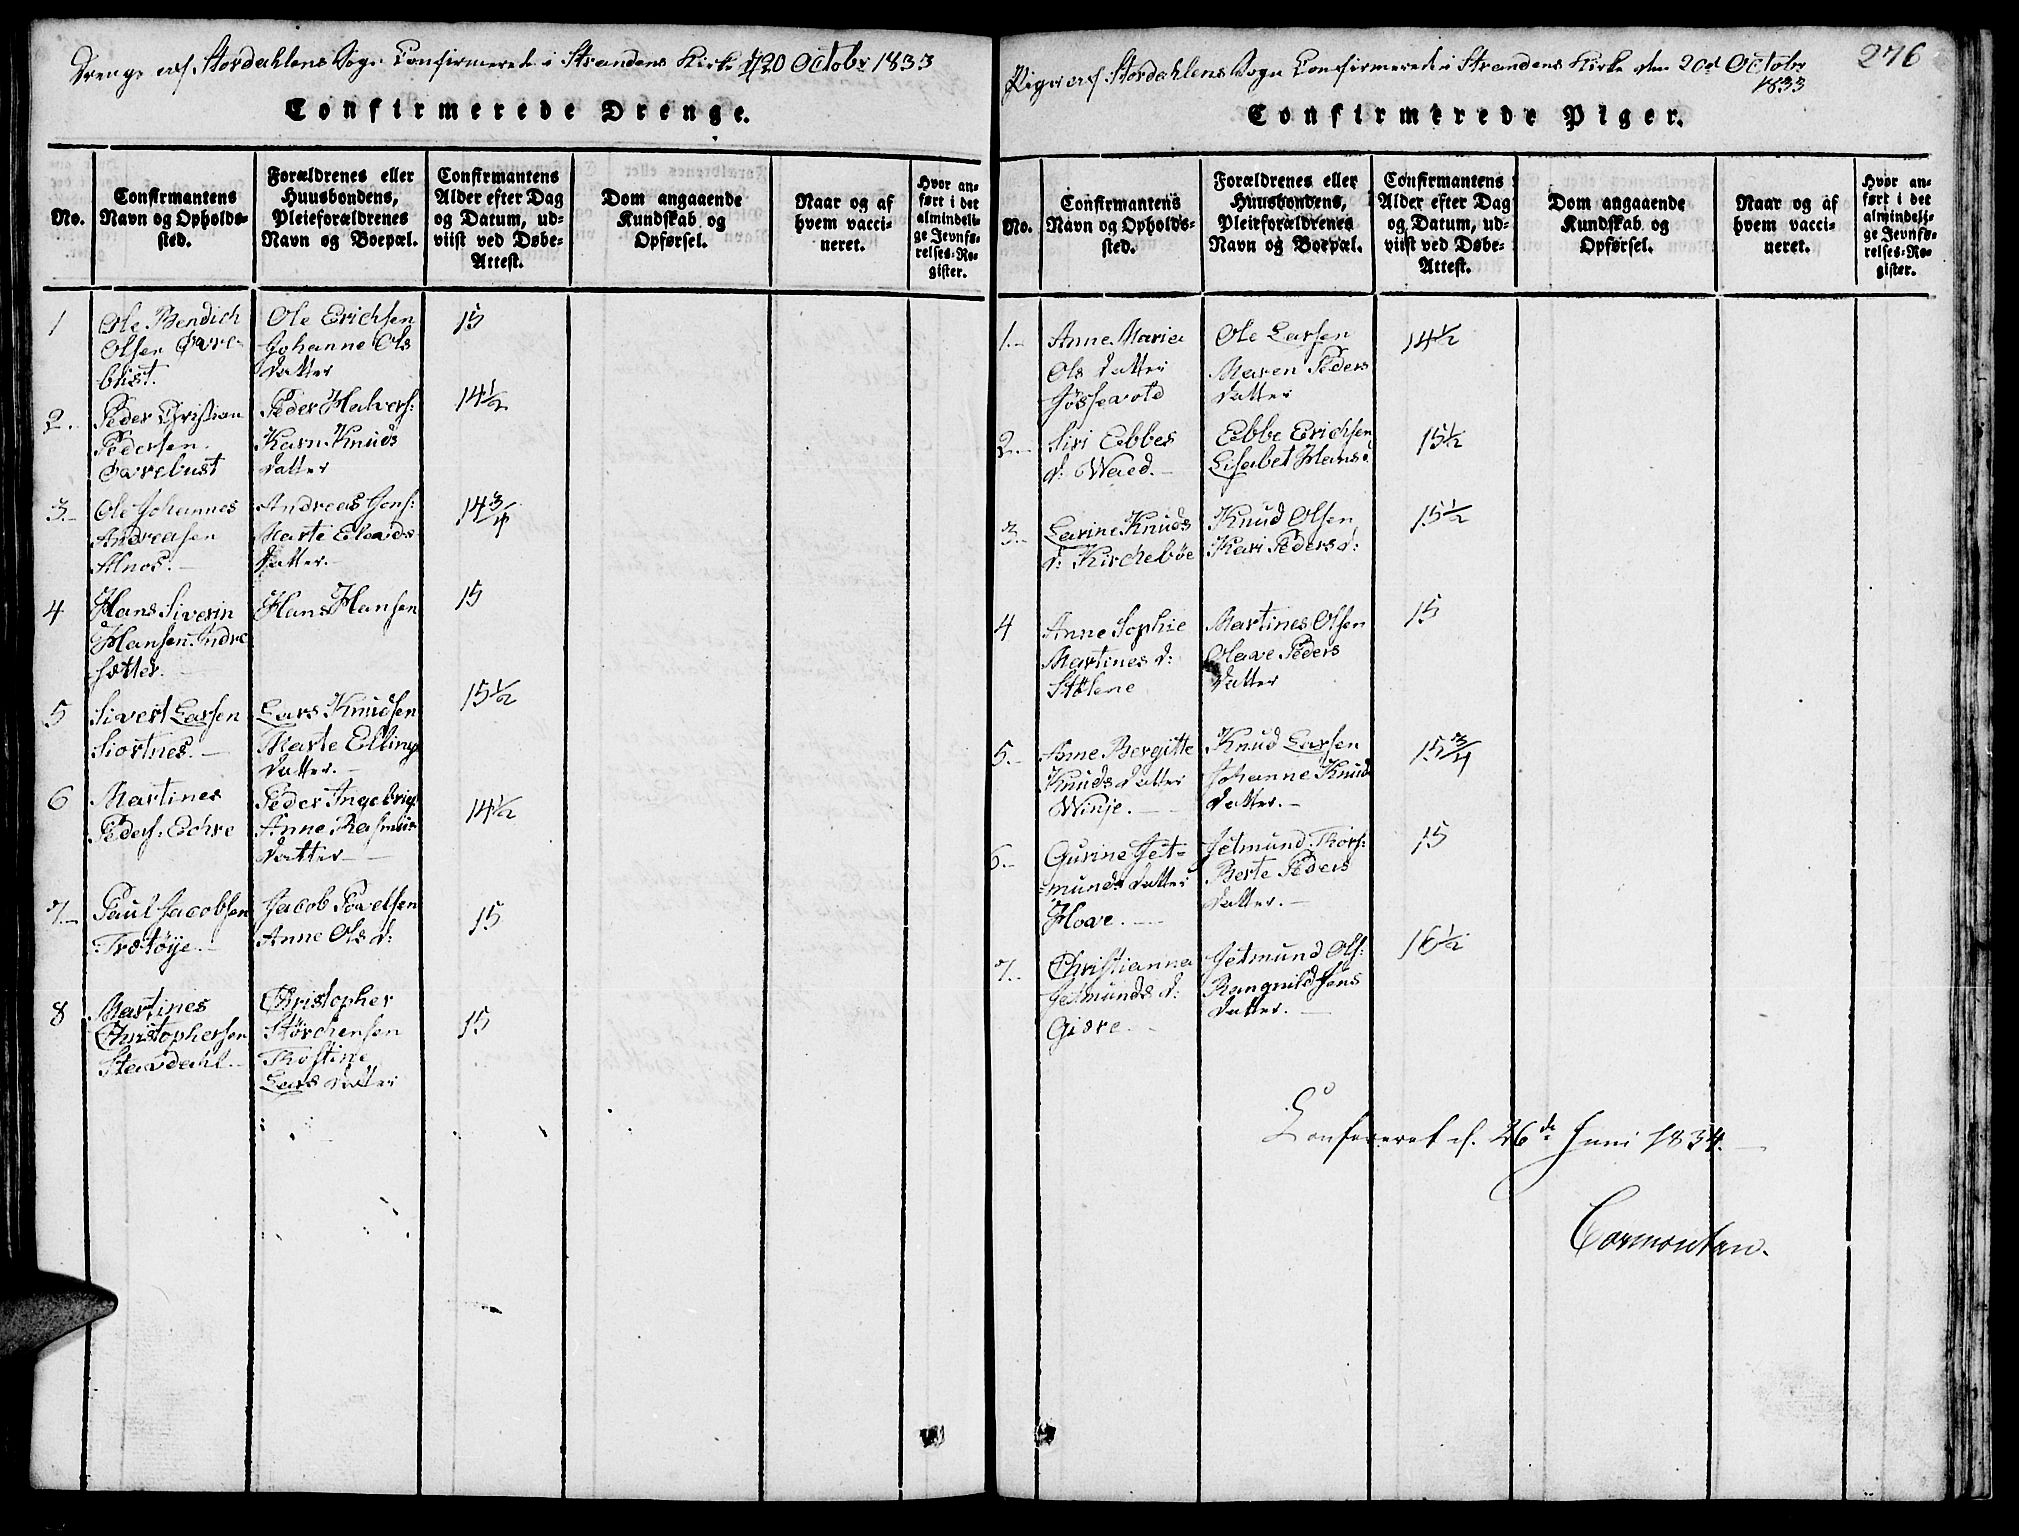 Drenge af Stordahlens Sogn Confirmerede i Strandens Kirke d 20 Octobr 1833
Confirmerede Drenge.
No.
Confirmantens
Navn og Opholds-
sted.
Forældrenes eller
Huusbondens,
Pleieforældrenes
Navn og Boepæl.
Confirmantens
Alder efter Dag
og Datum, ud-
viist ved Døbe-
Attest.
Dom angaaende
Kundskab og
Opførsel.
Naar og af
hvem vacci-
neret.
Hvor an-
ført i det
almindeli-
ge Jevnfø-
relses-Re-
gister.
1
Ole Bendich
Olsen Øvre-
bust.
Ole Erichsen
Johanne Ols
datter
15
2.
Peder Christian
Pedersen
Øvrebust
Peder Halvers:
Karn Knuds
datter
14½
3.
Ole Johannes
Andreasen
Alnos.
Andreas Jons:
Marte Elends
datter.
14¾
4
Hans Siverin
Hansen Indre
Sætter.
Hans Hansen
15
5
Sivert Larsen
Siortnes.
Lars Knudsen
Marte Elling
datter.
15½
6
Martines
Peders: Echre
Peder Ingebrigs
Anne Rasmus
datter
14½
7.
Paul Jacobsen
Trætøye.
Jacob Povelsen
Anne Ols d:
15
8
Martines
Christophersen
Stavdahl.
Christopher
Størchersen
Thostine
Lars datter
15
276
Piger af Stordahlens Sogn Confirmerede i Strandens Kirke den 20d Octobr
1833
Confirmerede Piger.
No.
Confirmantens
Navn og Opholds-
sted.
Forældrenes eller
Huusbondens,
Pleieforældrenes
Navn og Boepæl.
Confirmantens
Alder efter Dag
og Datum, ud-
viist ved Døbe-
Attest.
Dom angaaende
Kundskab og
Opførsel.
Naar og af
hvem vacci-
neret.
Hvor an-
ført i det
almindeli-
ge Jevnfø-
relses-Re-
gister.
1.
Anne Maria
Ols datter
Jøssevold
Ole Larsen
Maren Peders
datter
14½
2.
Siri Ebbes
d: Waed.
Ebbe Erichsen
Lisabet Hans
15½
3.
Larine Knuds
d: Kirchebøe
Knud Olsen
Kari Peders d:
15½
4
Anne Sophie
Martines d:
Stølene
Martines Olsen
Olave Peders
datter
15
5.
Anne Bergitte
Knuds datter
Winje.
Knud Larsen
Johanne Knud
datter.
15¾
6.
Gurine Jet-
munds datter
Hove.
Jetmund Thors:
Berte Peders
datter.
15
7.
Christianna
Jetmunds d:
Giære.
Jetmund Ols:
Rangnild Jens
datter.
16½
Confereret d. 26de Juni 1834.
Cormontan.